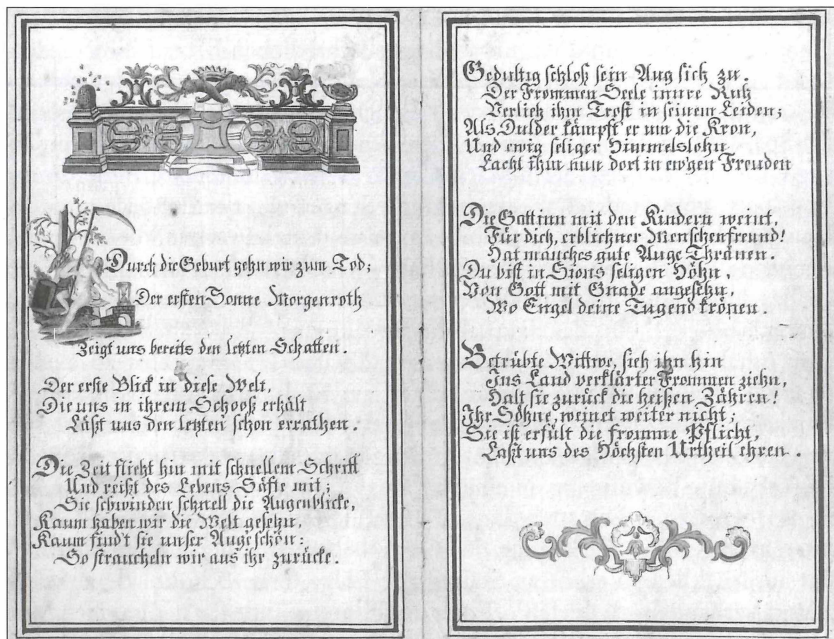 Durch die Geburt gehn wir zum Tod;
Der ersten Sonne Morgenroth
Zeigt uns bereits den letzten Schatten.
Der erste Blick in diese Welt,
Die uns in ihrem Schooß erhält
Läßt uns den letzten schon errathen.
Die Zeit flieht hin mit schnellem Schritt
Und reißt des Lebens-Säfte mit;
Sie schwinden schnell die Augenblicke,
Kaum haben wir die Welt gesehn,
Kaum find't sie unser Auge schön:
So straucheln wir aus ihr zurücke.
Gedultig schloß sein Aug sich zu.
Der Frommen Seele innre Ruh
Verlieh ihm Trost in seinem Leiden;
Als Dulder kämpft er um die Kron,
Und ewig seliger Himmelslohn
Lacht ihm nun dort in ew'gen Freuden
Die Gattinn mit den Kindern weint,
Für dich, erblichner Menschenfreund!
Hat manches gute Auge Thränen.
Du bist in Sions seligen Höhn,
Von Gott mit Gnade angesehn,
Wo Engel deine Tugend krönen.
Betrübte Wittwe, sieh ihn hin
Ins Land verklärter Frommen ziehn,
Halt sie zurück die heißen Zähren!
Ihr Söhne, weinet weiter nicht;
Sie ist erfült die fromme Pflicht,
Laßt uns des Höchsten Urtheil ehren.